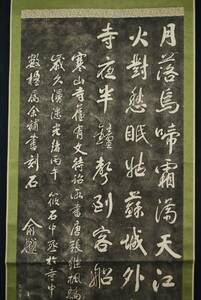 月落烏啼霜滿天江
火對愁眠姑蘇城外
寺夜半鐘聲到客船
寒山寺舊有文待詔所書唐張繼楓橋
歲久漫漶光緒丙午筱石中丞於寺中
數楹屬余補書刻石
俞樾